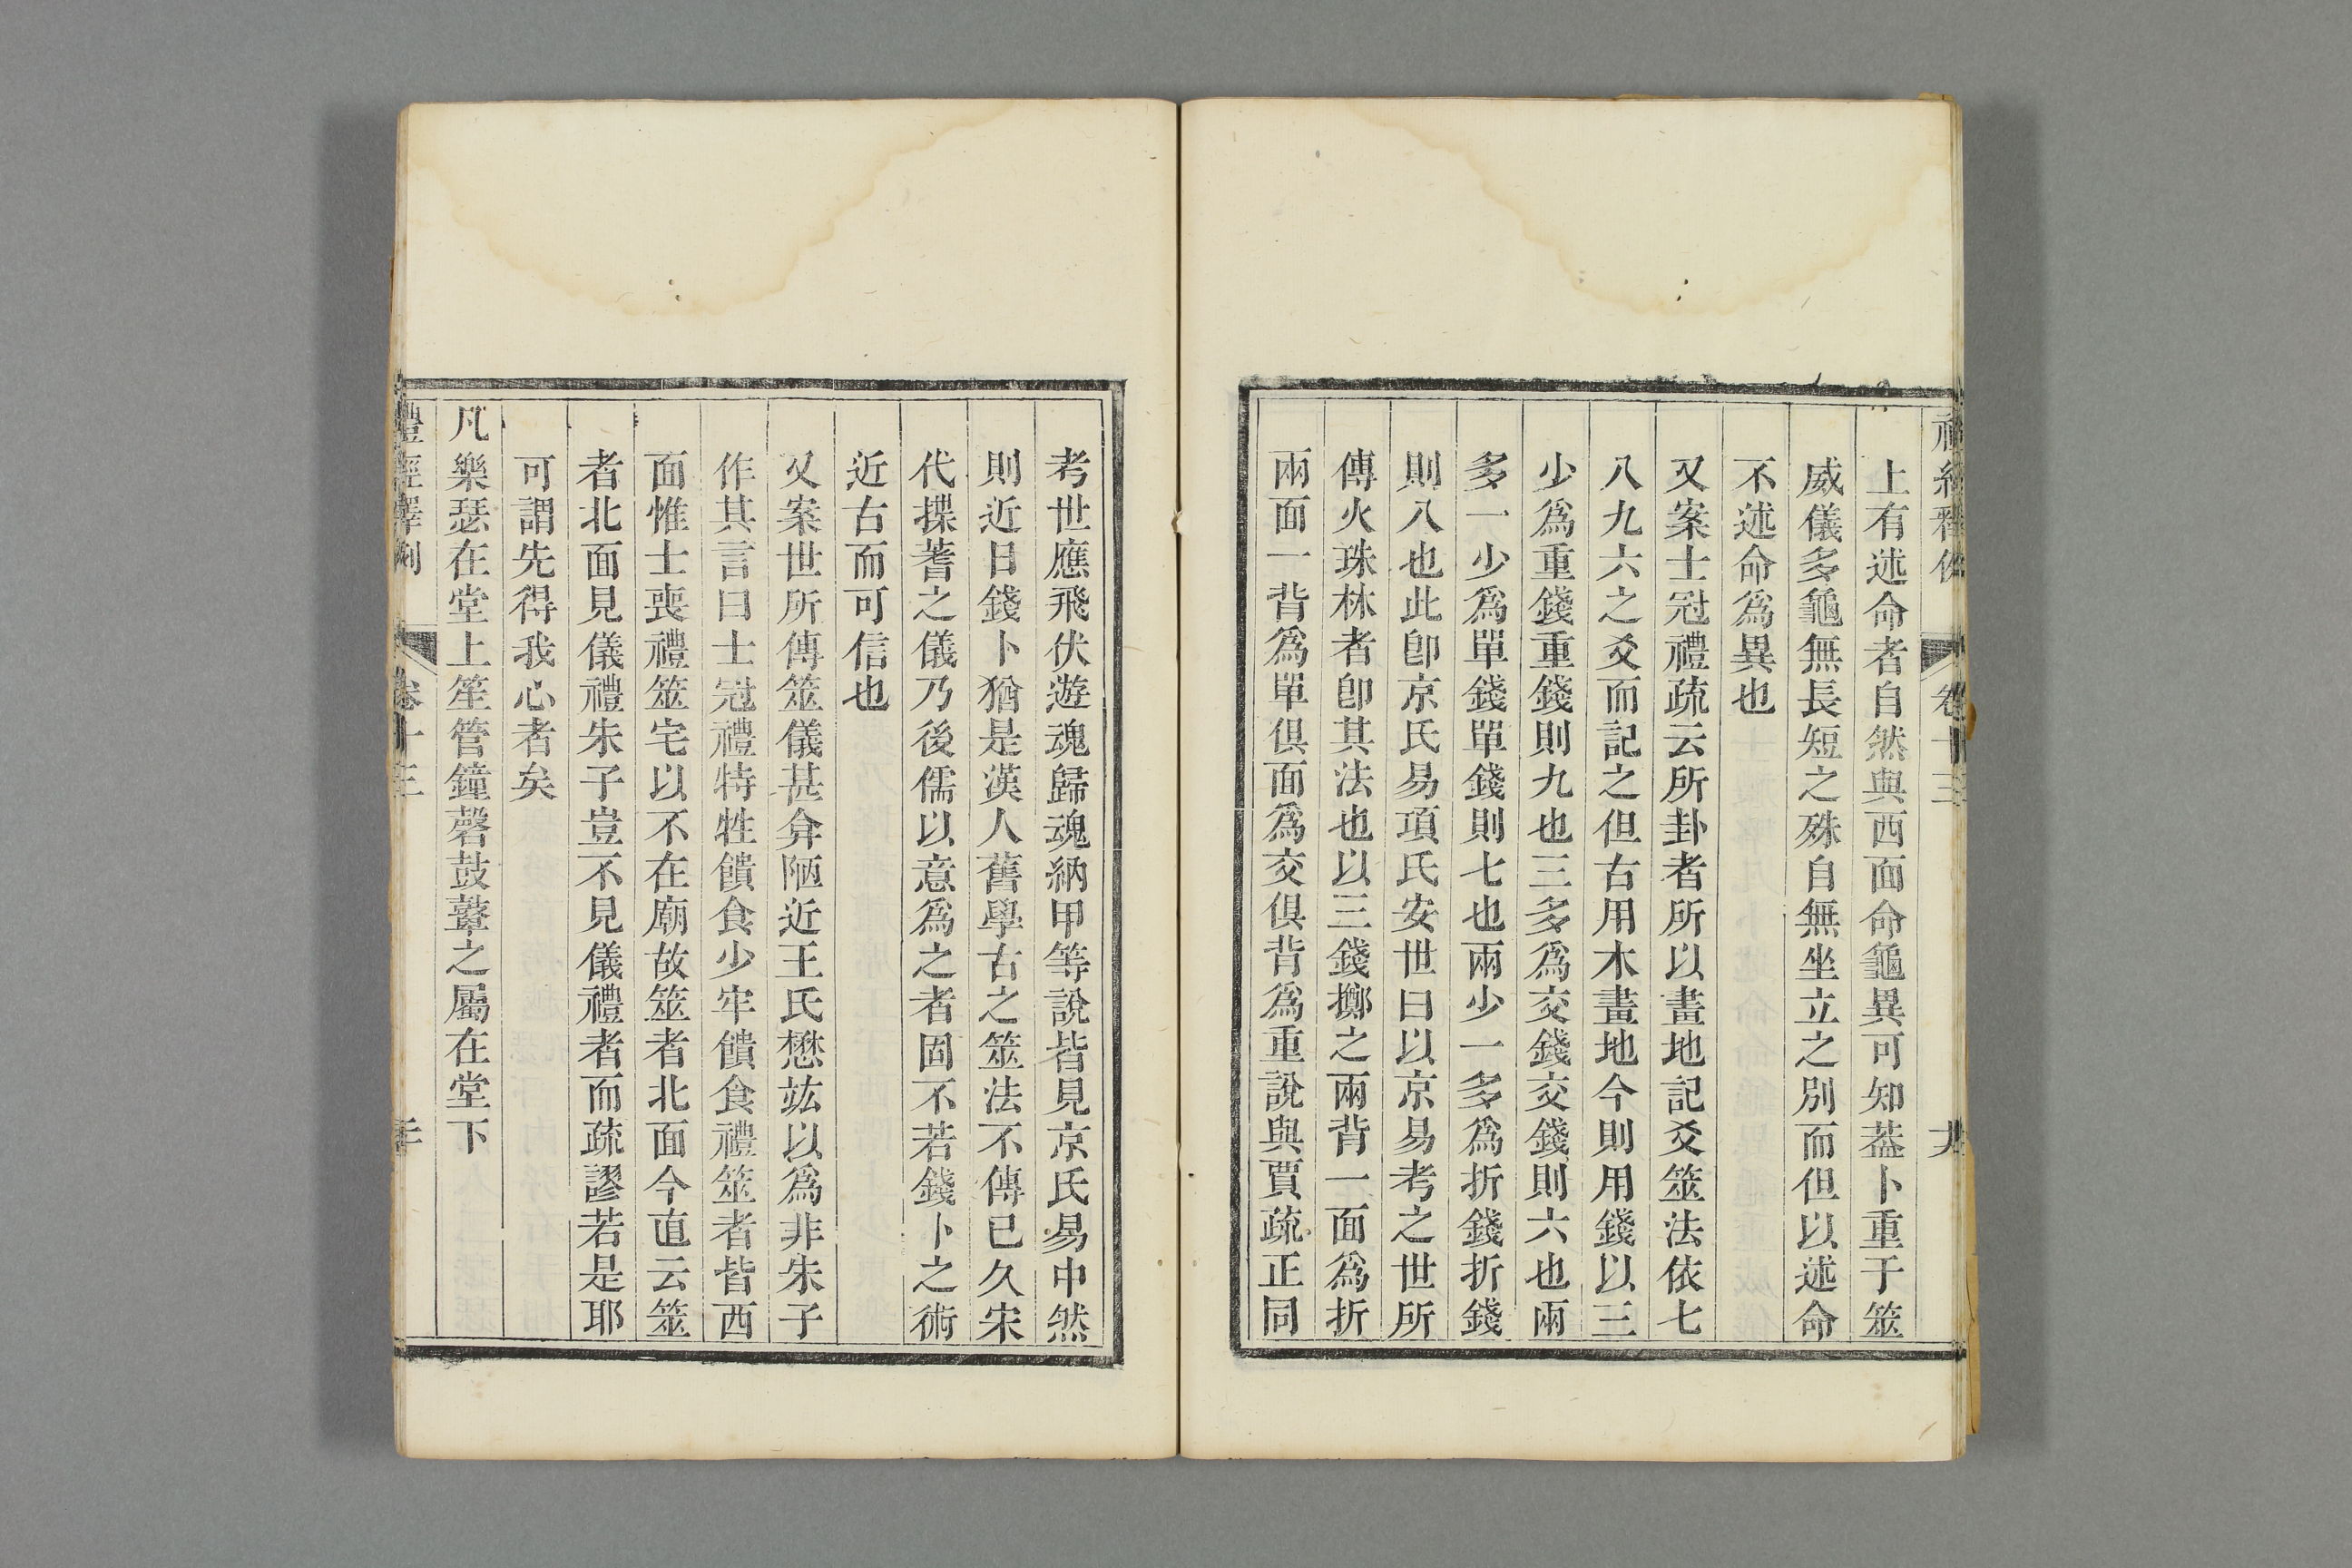 禮經釋例 卷十三 十九
上有述命者自然與西面命龜異可知葢卜重于筮
威儀多龜無長短之殊自無坐立之別而但以述命
不述命爲異也
又案士冠禮疏云所卦者所以畫地記爻筮法依七
八九六之爻而記之但古用木畫地今則用錢以三
少爲重錢重錢則九也三多爲交錢交錢則六也兩
多一少爲單錢單錢則七也兩少一多爲折錢折錢
則八也此卽京氏易項氏安世曰以京易考之世所
傳火珠林者卽其法也以三錢擲之兩背一面爲折
兩面一背爲單俱面爲交俱背爲重說與賈疏正同
考世應飛伏遊魂歸魂納甲等說皆見京氏易中然
則近日錢卜猶是漢人舊學古之筮法不傳已久宋
代揲蓍之儀乃後儒以意爲之者固不若錢卜之術
近右而可信也
又案世所傳筮儀甚弇陋近王氏懋竑以爲非朱子
作其言曰士冠禮特牲饋食少牢饋食禮筮者皆西
面惟士喪禮筮宅以不在廟故筮者北面今直云筮
者北面見儀禮朱子豈不見儀禮者而疏謬若是耶
可謂先得我心者矣
凡樂瑟在堂上笙管鐘磬鼓鼙之屬在堂下
禮經釋例 卷十三 二十